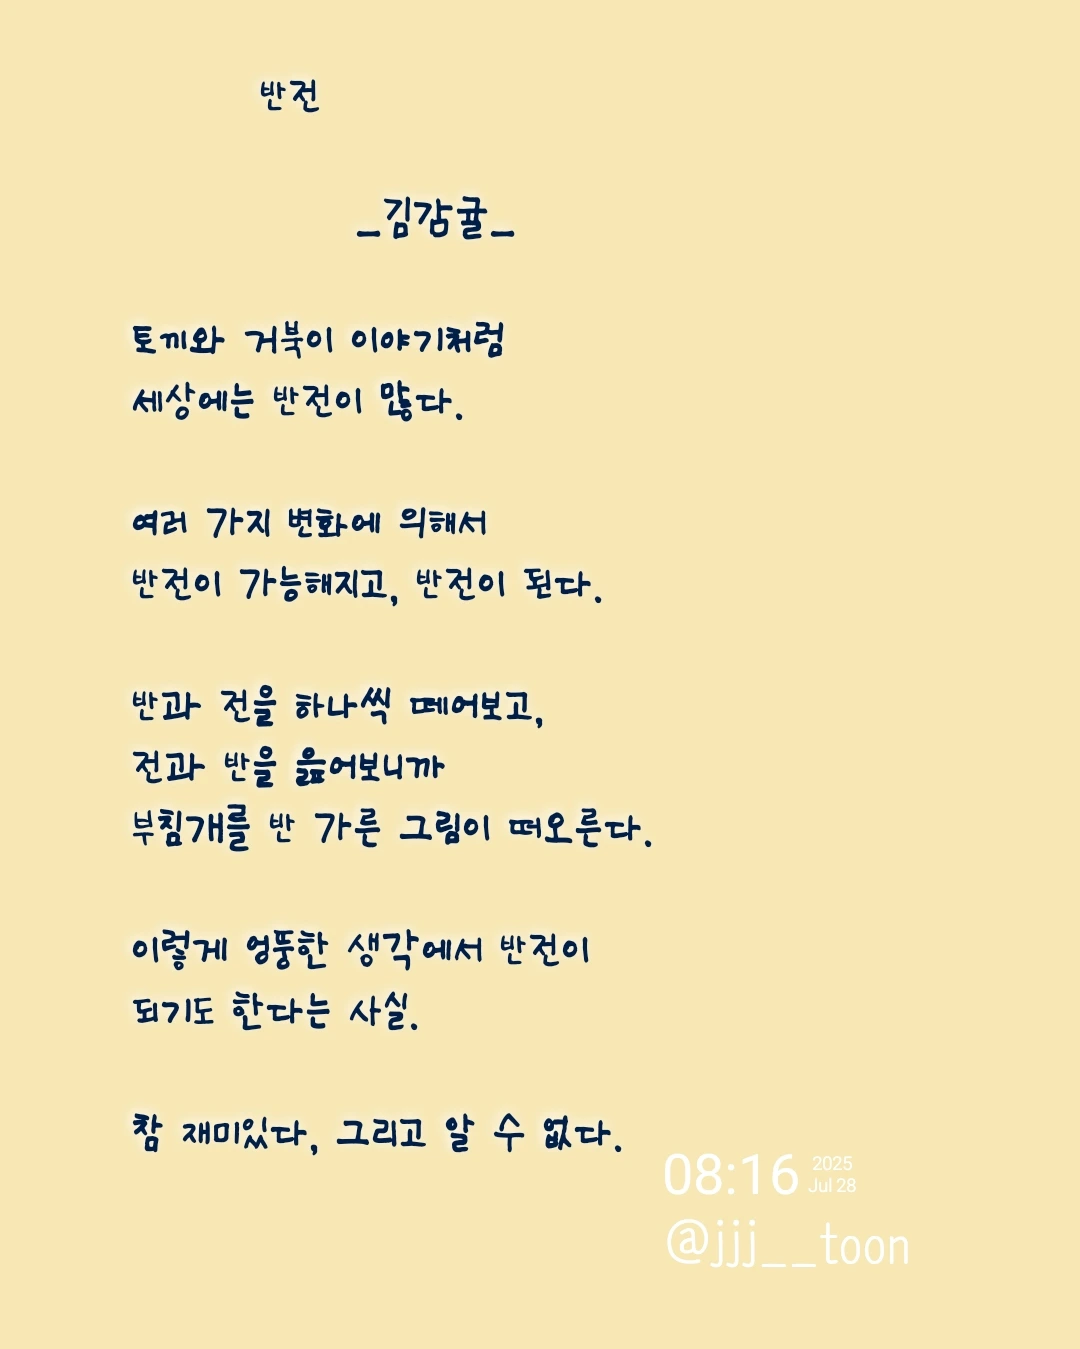 반전
_김감귤_
토끼와 거북이 이야기처럼
세상에는 반전이 많다.
여러 가지 변화에 의해서
반전이 가능해지고, 반전이 된다.
반과 전을 하나씩 떼어보고,
전과 반을 읊어보니까
부침개를 반 가른 그림이 떠오른다.
이렇게 엉뚱한 생각에서 반전이
되기도 한다는 사실.
참 재미있다, 그리고 알 수 없다.
08:16 2025 Jul 28
@jjj__toon